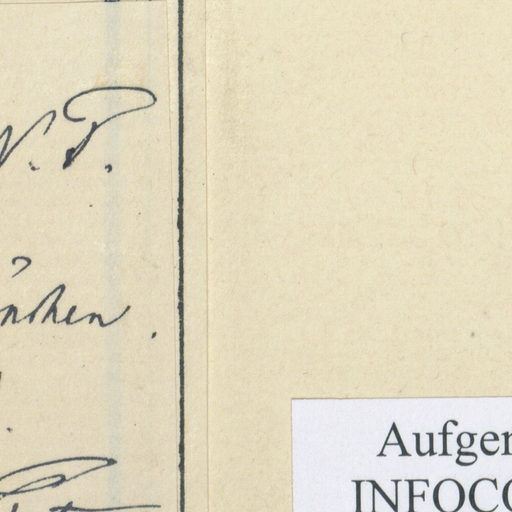 V. P.
ünchen.
Aufger
INFOCO